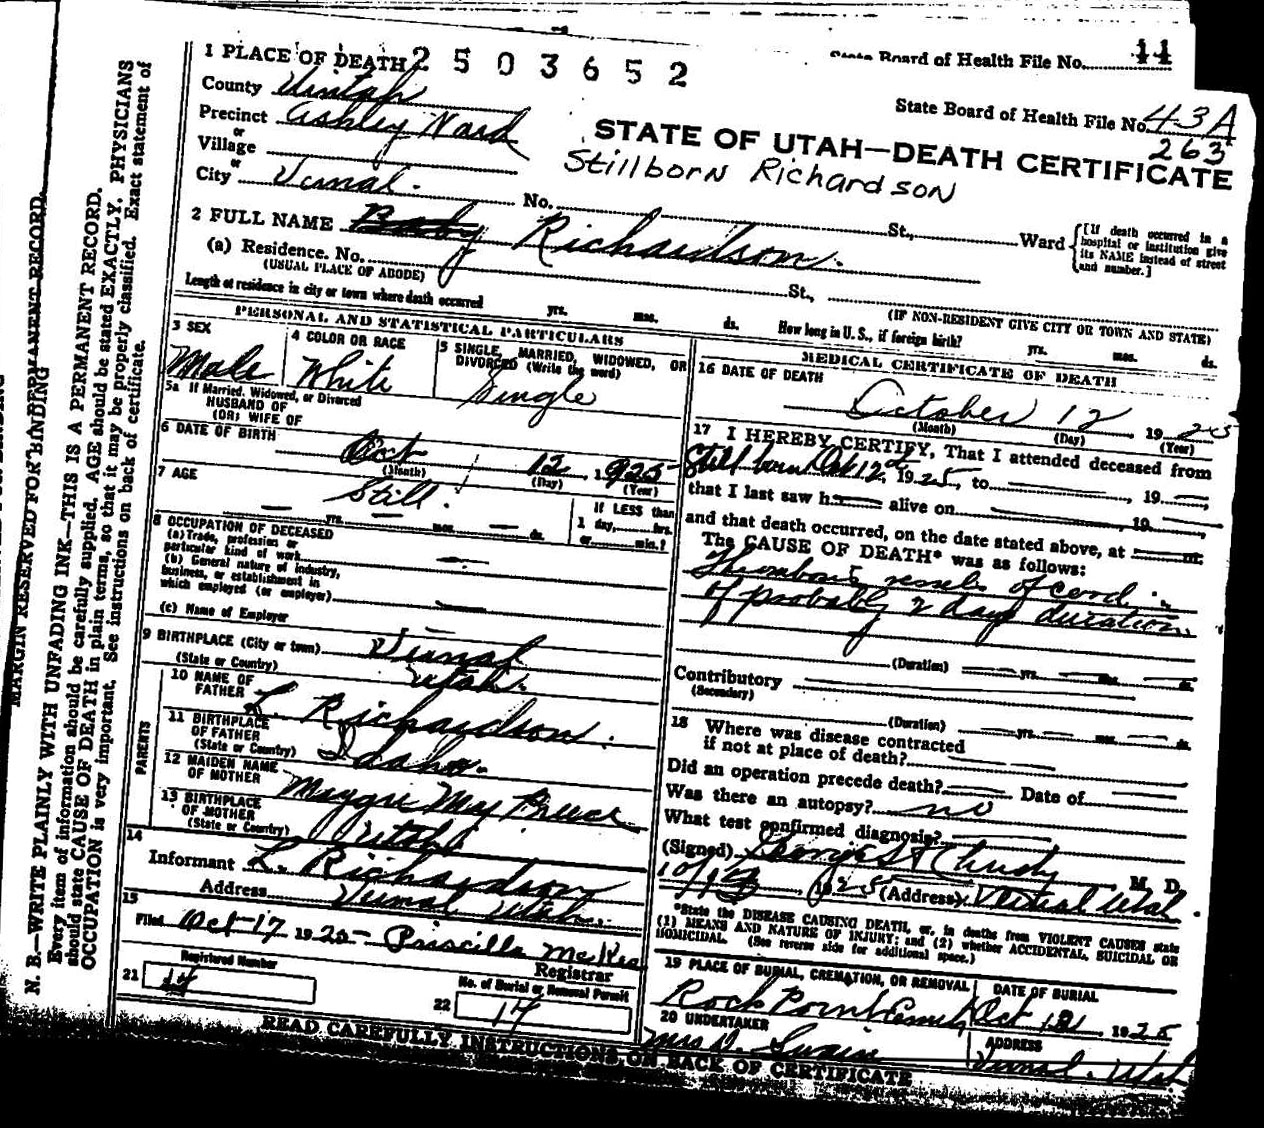 State Board of Health File No. 11
1 PLACE OF DEATH 2503652
County Uintah
State Board of Health File No. 43A
263
Precinct Ashley Ward
or
Village
or
City Vernal. No. St., Ward
STATE OF UTAH—DEATH CERTIFICATE
Stillborn Richardson
[If death occurred in a hospital or institution give its NAME instead of street and number.]
2 FULL NAME Baby Richardson.
(a) Residence. No. St.,
(USUAL PLACE OF ABODE) (IF NON-RESIDENT GIVE CITY OR TOWN AND STATE)
Length of residence in city or town where death occurred yrs. mos. ds. How long in U. S., if foreign birth? yrs. mos. ds.
PERSONAL AND STATISTICAL PARTICULARS
3 SEX
Male
4 COLOR OR RACE
White
5 SINGLE, MARRIED, WIDOWED, OR DIVORCED (Write the word)
Single
5a If Married, Widowed, or Divorced
HUSBAND OF
(OR) WIFE OF
6 DATE OF BIRTH
Oct 12 1925
(Month) (Day) (Year)
7 AGE
Still.
yrs. mos. ds.
If LESS than
1 day, hrs.
or min.?
8 OCCUPATION OF DECEASED
(a) Trade, profession or
particular kind of work
(b) General nature of industry,
business, or establishment in
which employed (or employer)
(c) Name of Employer
9 BIRTHPLACE (City or town) Vernal
(State or Country) Utah.
PARENTS
10 NAME OF
FATHER L. Richardson.
11 BIRTHPLACE
OF FATHER
(State or Country) Idaho.
12 MAIDEN NAME
OF MOTHER Maggie May
13 BIRTHPLACE
OF MOTHER
(State or Country) Utah
14
Informant L. Richardson
Address Vernal Utah
15
Filed Oct-17 1925 Priscilla
Registrar
Registered Number
21 14
No. of Burial or Removal Permit
22 14
MEDICAL CERTIFICATE OF DEATH
16 DATE OF DEATH
October 12 1925
(Month) (Day) (Year)
17 I HEREBY CERTIFY, That I attended deceased from
Still born Oct 12 1925, to , 19
that I last saw h alive on , 19
and that death occurred, on the date stated above, at m.
The CAUSE OF DEATH* was as follows:
Thrombosis vessels of cord
of probably 2 days duration
(Duration) yrs. mos. ds.
Contributory
(Secondary)
(Duration) yrs. mos. ds.
18 Where was disease contracted
if not at place of death?
Did an operation precede death? Date of
Was there an autopsy? no
What test confirmed diagnosis?
(Signed) George M. D.
10/13, 1925 (Address) Vernal Utah.
*State the DISEASE CAUSING DEATH, or, in deaths from VIOLENT CAUSES state
(1) MEANS AND NATURE OF INJURY; and (2) whether ACCIDENTAL, SUICIDAL OR
HOMICIDAL. (See reverse side for additional space.)
19 PLACE OF BURIAL, CREMATION, OR REMOVAL
Rock Point
DATE OF BURIAL
Oct 1925
20 UNDERTAKER
Mrs D. Swain
ADDRESS
Vernal Utah
READ CAREFULLY INSTRUCTIONS ON BACK OF CERTIFICATE
MARGIN RESERVED FOR BINDING
N. B.—WRITE PLAINLY WITH UNFADING INK—THIS IS A PERMANENT RECORD.
Every item of information should be carefully supplied. AGE should be stated EXACTLY. PHYSICIANS
should state CAUSE OF DEATH in plain terms, so that it may be properly classified. Exact statement of
OCCUPATION is very important. See instructions on back of certificate.